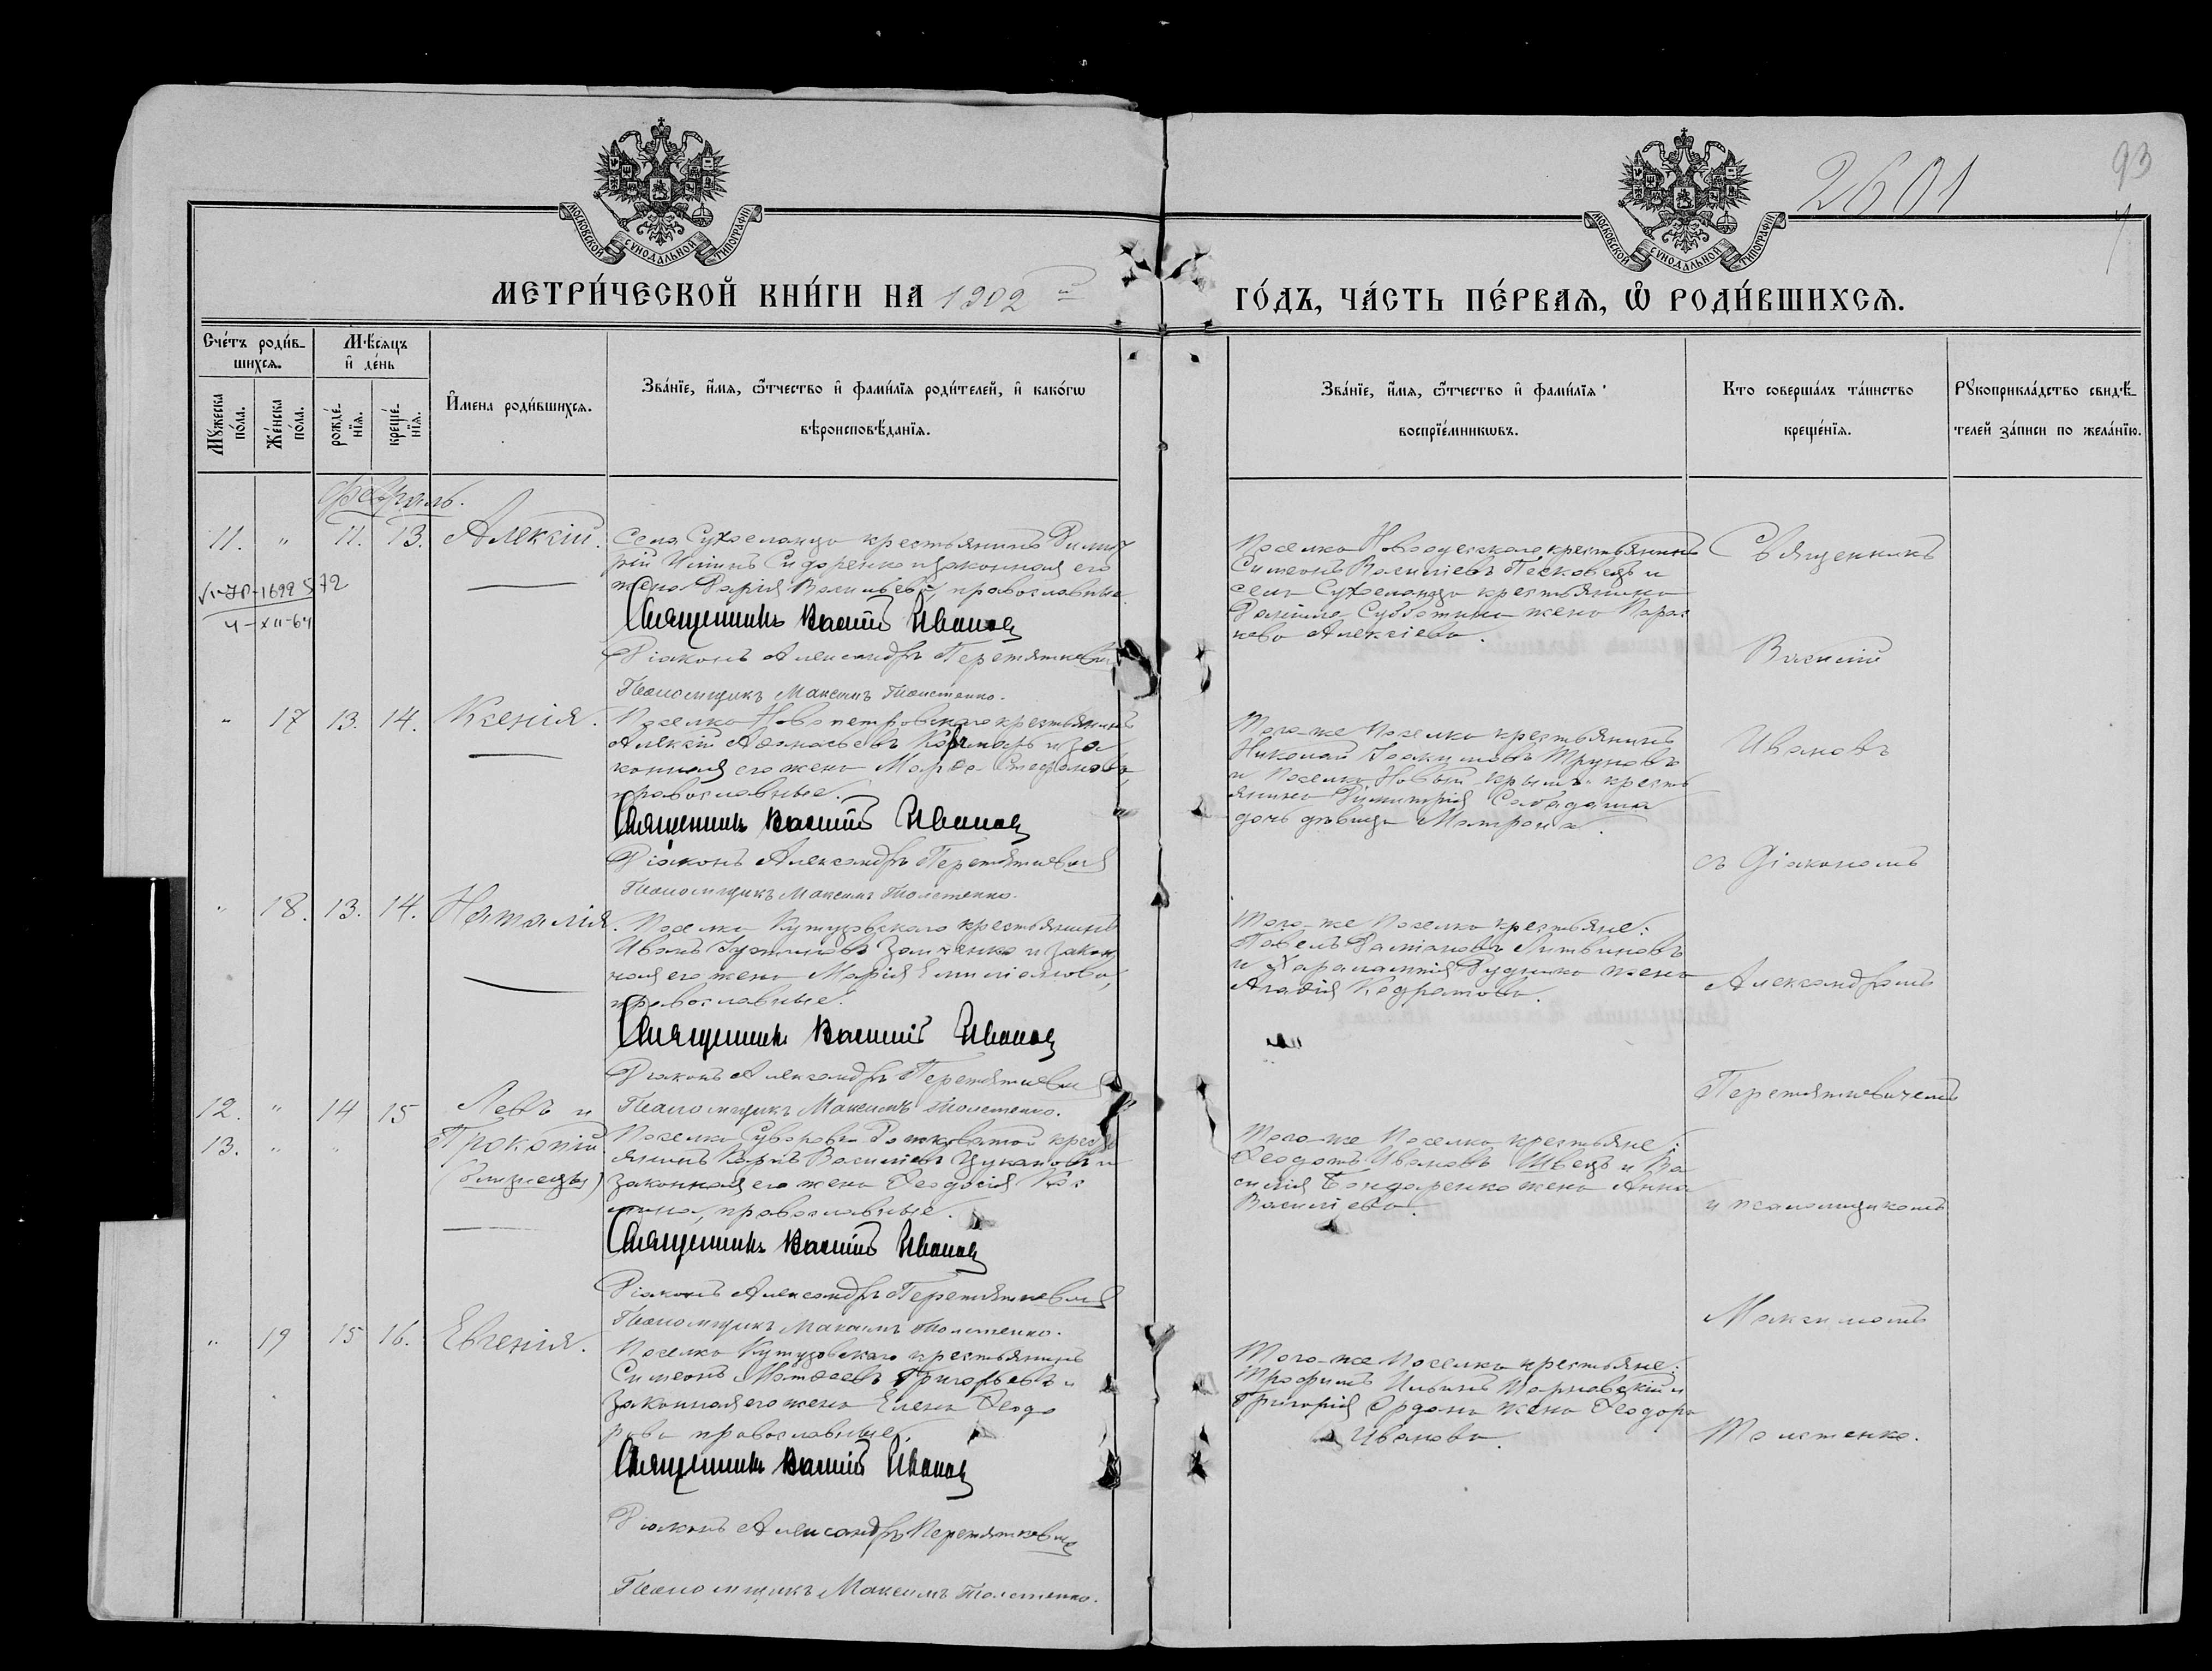 2601
93
МОСКОВСКОЙ СѴНОДАЛЬНОЙ ТИПОГРАФІИ
МОСКОВСКОЙ СѴНОДАЛЬНОЙ ТИПОГРАФІИ
МЕТРИ́ЧЕСКОЙ КНИ́ГИ НА 1902 й
ГО́ДЪ, ЧА́СТЬ ПЕ́РВАЯ, Ѡ РОДИ́ВШИХСЯ.
Сче́тъ роди́в-
шихся.
Мѣ́сяцъ
и де́нь
Мꙋжеска по́ла.
Же́нска по́ла.
рожде́нїя.
креще́нїя.
И́мена роди́вшихся.
Зва́нїе, и́мя, ѻ́тчество и фами́лїя роди́телей, и како́гѡ
вѣроисповѣ́данїя.
Зва́нїе, и́мя, ѻ́тчество и фами́лїя
воспрїе́мникѡвъ.
Кто соверша́лъ та́инство
креще́нїя.
Рꙋкоприкла́дство свидѣ́-
телей за́писи по жела́нїю.
Февраль.
11. " 11. 13. Алексій.
Села Сухоеланца крестьянинъ Димит
рій Ильинъ Сидоренко и законная его
жена Дарія Васильева, православные
Священникъ Василій Ивановъ
Діаконъ Александръ Перетяткевичъ
Псаломщикъ Максимъ Толстенко.
Поселка Новоодесскаго крестьянинъ
Симеонъ Василіевъ и
села Сухоеланца крестьянина
Даніила Субботина жена Парас
кева Алексіева.
Священникъ
Василій
" 17 13. 14. Ксенія.
Поселка Новопетровскаго крестьянинъ
Алексій Аѳанасьевъ и за
конная его жена Марѳа Стефанова,
православные.
Священникъ Василій Ивановъ
Діаконъ Александръ Перетяткевичъ
Псаломщикъ Максимъ Толстенко.
Того-же поселка крестьянинъ
Николай Іоакимовъ Труновъ
и поселка Новый-Крымъ кресть
янина Димитрія
дочь дѣвица Матрона.
Ивановъ
съ Діакономъ
" 18. 13. 14. Наталія.
Поселка Кутузовскаго крестьянинъ
Иванъ Іустиновъ и закон
ная его жена Марія Емиліанова,
православные.
Священникъ Василій Ивановъ
Діаконъ Александръ Перетяткевичъ
Псаломщикъ Максимъ Толстенко.
Того-же поселка крестьяне:
Павелъ Даміановъ Литвиновъ
и Харалампія Руденко жена
Агаѳія Кодратова.
Александромъ
Перетяткевичемъ
12. " 14 15 Левъ и
13. " " Прокопій
(близнецы)
Поселка Суворова кресть
янинъ Карпъ Василіевъ Цукановъ и
законная его жена Ѳеодосія
православные.
Священникъ Василій Ивановъ
Діаконъ Александръ Перетяткевичъ
Псаломщикъ Максимъ Толстенко.
Того-же поселка крестьяне:
Ѳеодотъ Ивановъ Швецъ и Ва
силія Бондаренко жена Анна
Василіева.
и псаломщикомъ
Максимомъ
" 19 15 16. Евгенія.
Поселка Кутузовскаго крестьянинъ
Симеонъ Матѳеевъ Григорьевъ и
законная его жена Елена Ѳеодо
рова православные.
Священникъ Василій Ивановъ
Діаконъ Александръ Перетяткевичъ
Псаломщикъ Максимъ Толстенко.
Того-же поселка крестьяне:
Трофимъ Ильинъ Варновскій и
Григорія жена Ѳеодора
Иванова.
Толстенко.